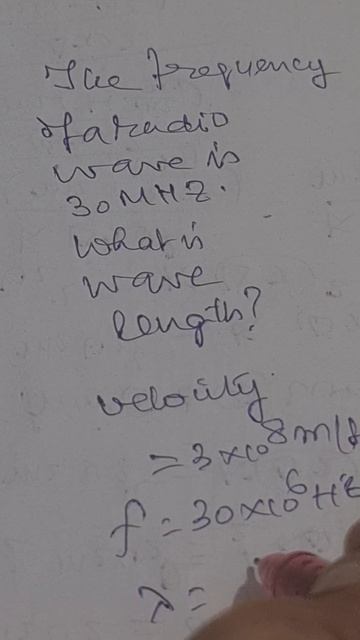 The frequency
of a radio
wave is
30 MHZ.
What is
wave
length?
velocity
= 3 × 10⁸ m/s
f = 30 × 10⁶ HZ
λ =